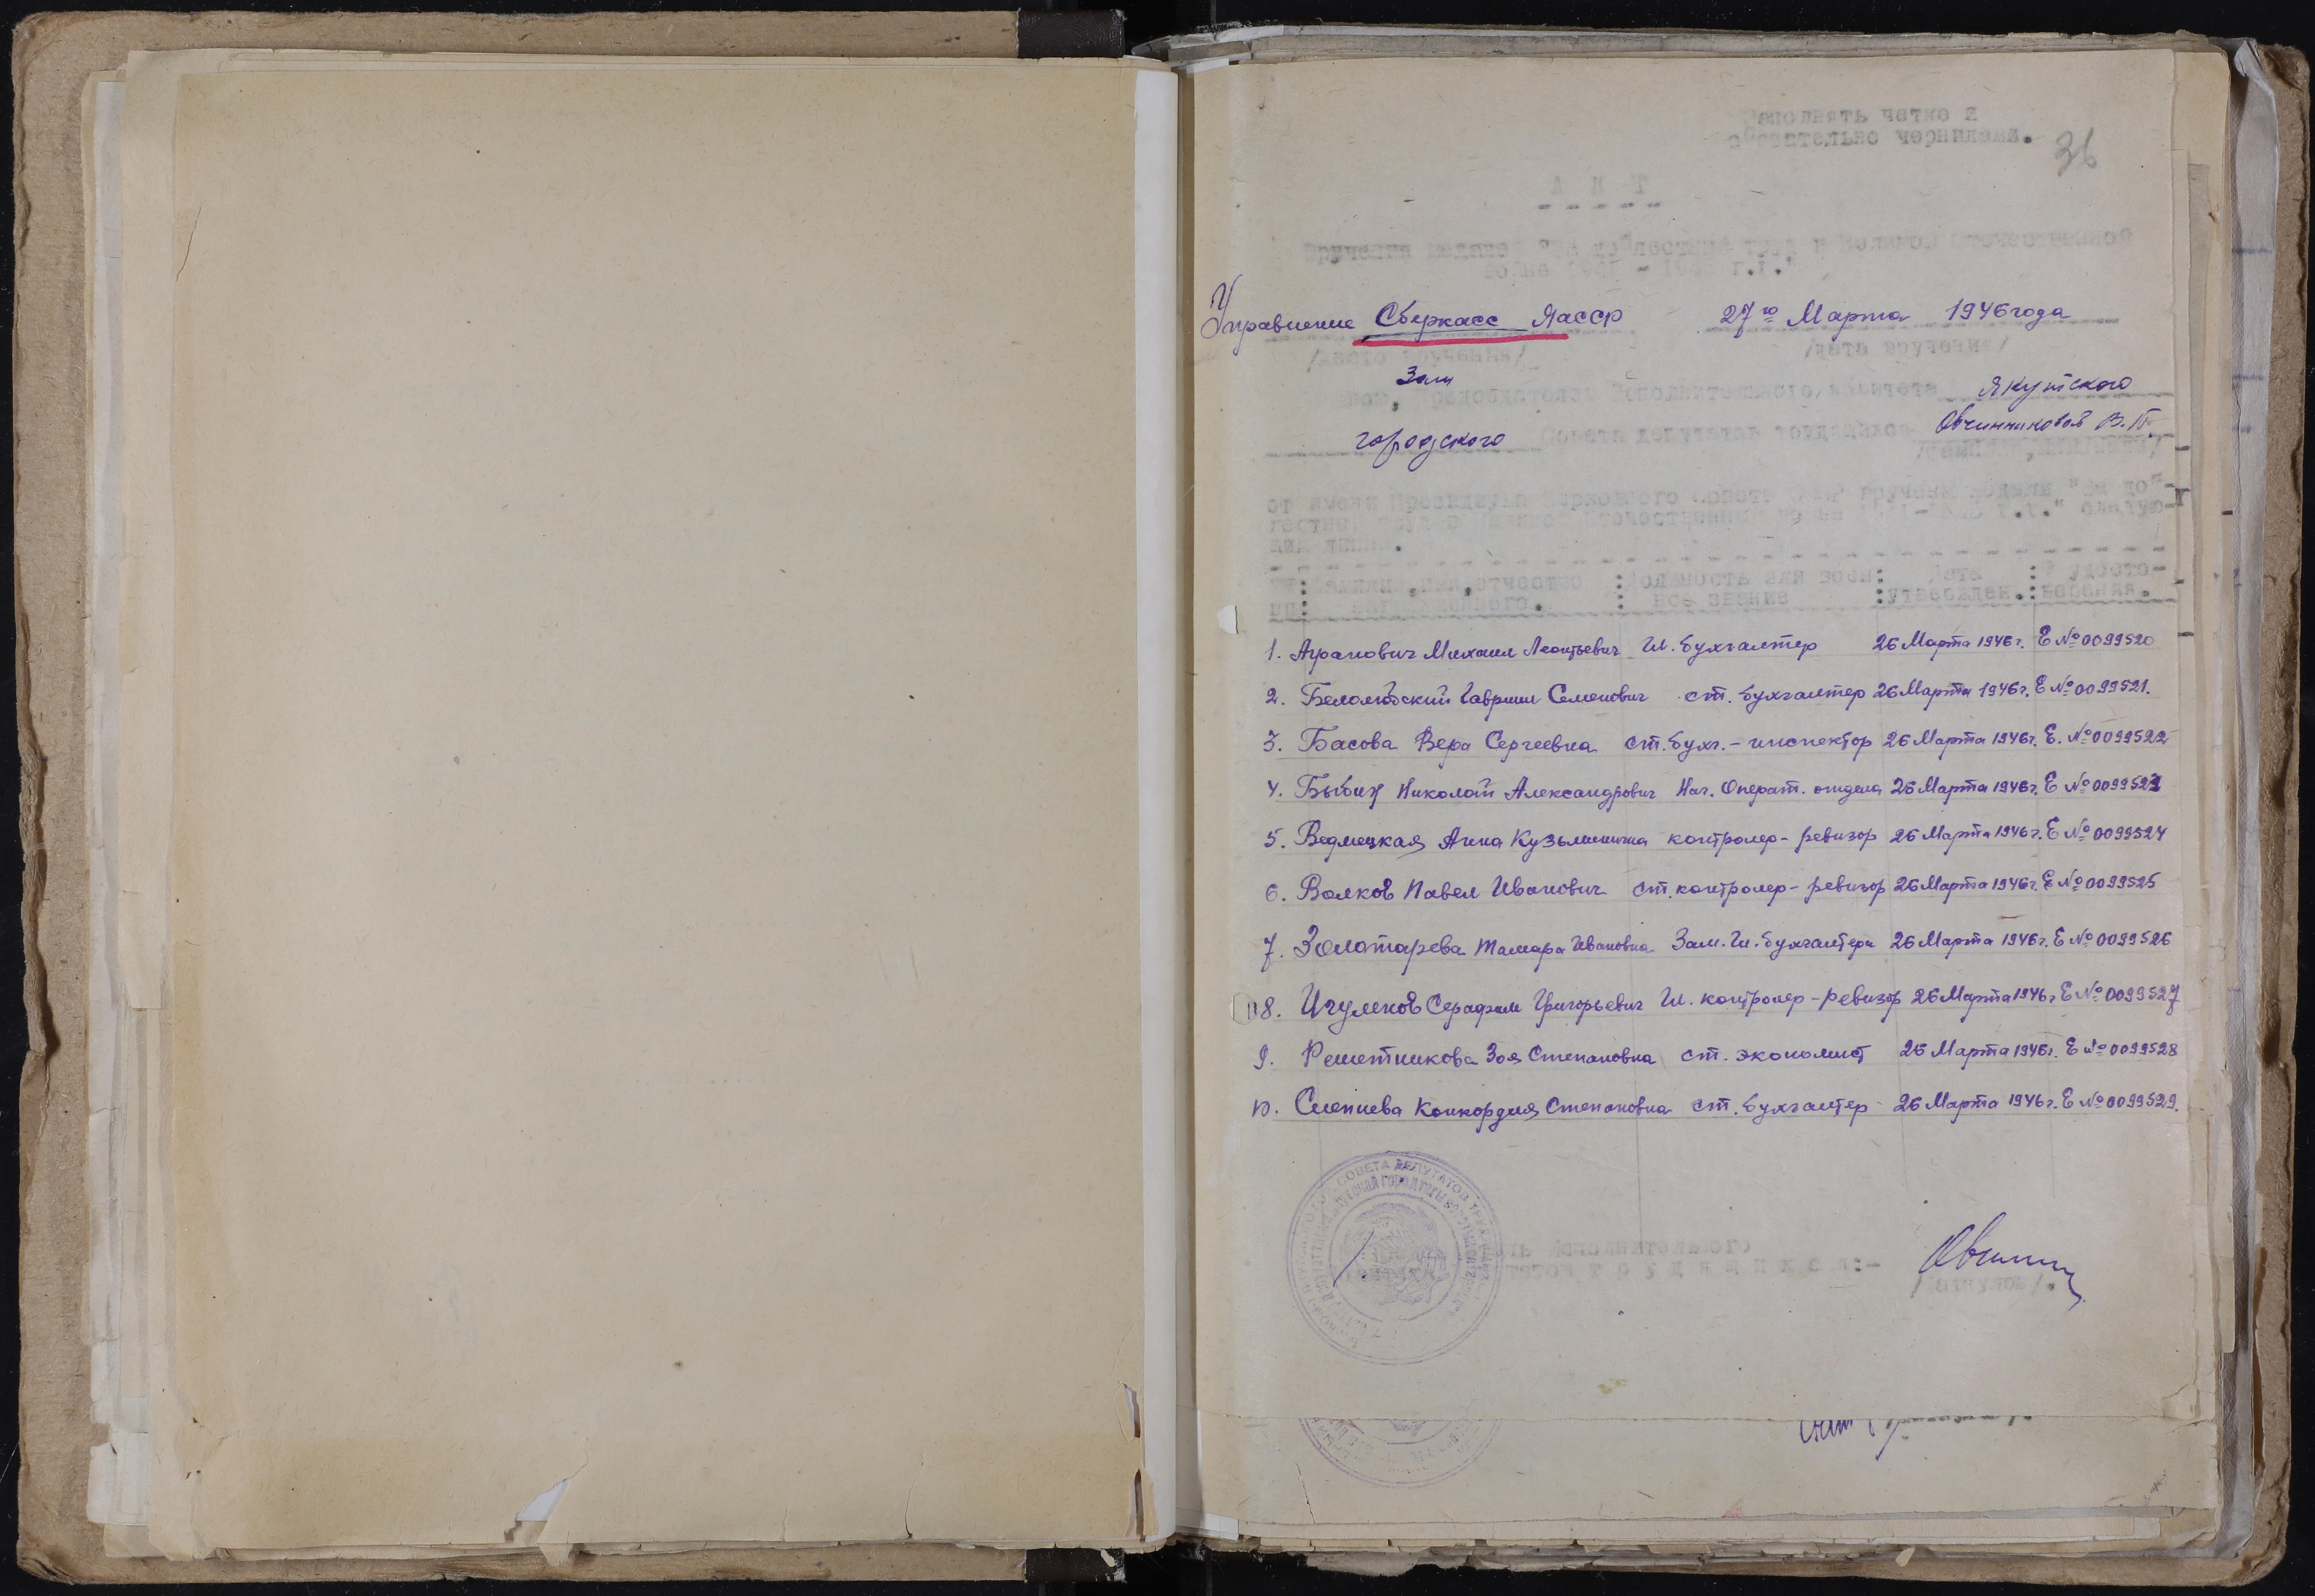 Заполнять четко и
обязательно чернилами.
36
А К Т
вручения медалей "За доблестный труд в Великой Отечественной
войне 1941 - 1945 г.г."
Управление Сберкасс ЯАССР 27го Марта 1946 года
/место вручения/ /дата вручения/
Зам
Мною, председателем Исполнительного комитета Якутского
городского Совета депутатов трудящихся Овчинниковой В.П.
/фамилия, инициалы/
от имени Президиума Верховного Совета СССР вручены медали "За доб-
лестный труд в Великой Отечественной войне 1941-1945 г.г." следую-
щим лицам.
Фамилия, имя, отчество : Должность или воен: Дата : № удосто-
пп: награжденного. : ное звание :утвержден.:верения.
1. Агранович Михаил Леонтьевич Гл. бухгалтер 26 Марта 1946 г. Е № 0099520
2. Белолюбский Гавриил Семенович ст. бухгалтер 26 Марта 1946 г. Е № 0099521.
3. Басова Вера Сергеевна ст. бухг. - инспектор 26 Марта 1946 г. Е. № 0099522
4. Николай Александрович Нач. Операт. отдела 26 Марта 1946 г. Е № 0099523
5. Ведмецкая Анна Кузьминична контролер - ревизор 26 Марта 1946 г. Е № 0099524
6. Волков Павел Иванович ст. контролер - ревизор 26 Марта 1946 г. Е № 0099525
7. Золотарева Тамара Ивановна Зам. Гл. бухгалтера 26 Марта 1946 г. Е № 0099526
8. Игумнов Серафим Григорьевич Гл. контролер - ревизор 26 Марта 1946 г. Е № 0099527
9. Решетникова Зоя Степановна ст. экономист 26 Марта 1946 г. Е № 0099528
10. Слепцева Конкордия Степановна ст. бухгалтер 26 Марта 1946 г. Е № 0099529.
СОВЕТА ДЕПУТАТОВ ТРУДЯЩИХСЯ
Председатель Исполнительного
комитета депутатов т р у д я щ и х с я:-